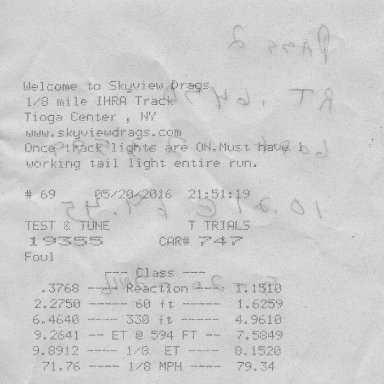 Welcome to Skyview Drags
1/8 mile IHRA Track
Tioga Center , NY
www.skyviewdrags.com
Once track lights are ON.Must have 1
working tail light entire run.
# 69 05/20/2016 21:51:19
TEST & TUNE T TRIALS
19355 CAR# 747
Foul
--- Class ---
.3768 ---- Reaction ---- 1.1510
2.2750 ----- 60 ft ----- 1.6259
6.4640 ---- 330 ft ----- 4.9610
9.2641 -- ET @ 594 FT -- 7.5849
9.8912 ---- 1/8 ET ---- 8.1520
71.76 ---- 1/8 MPH ---- 79.34